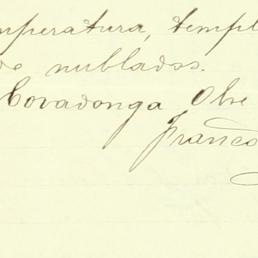 mperatura, templ
de nublados.
Covadonga Obre
Franco